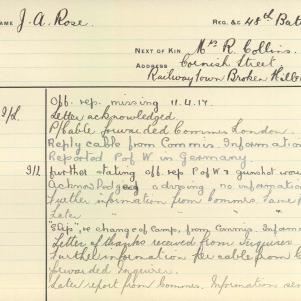 NAME J. A. Rose. REG. &c 48th Bat
NEXT OF KIN Mrs R. Collins.
ADDRESS Cornish Street
Railway Town Broken Hill
Off. rep. missing 11.4.17.
Letter acknowledged.
P/Cable forwarded Commr London.
Reply cable from Commis. Information
Reported P of W in Germany.
further stating off. rep P of W & gunshot wou
Acknowledged advising no informatio
Further information from Commr.
Later
"Slip", re change of Camp, from Commis. Inform
Letter of thanks received from Inquirer.
Further information per cable from C
forwarded Inquirer.
Later report from Commr. Information